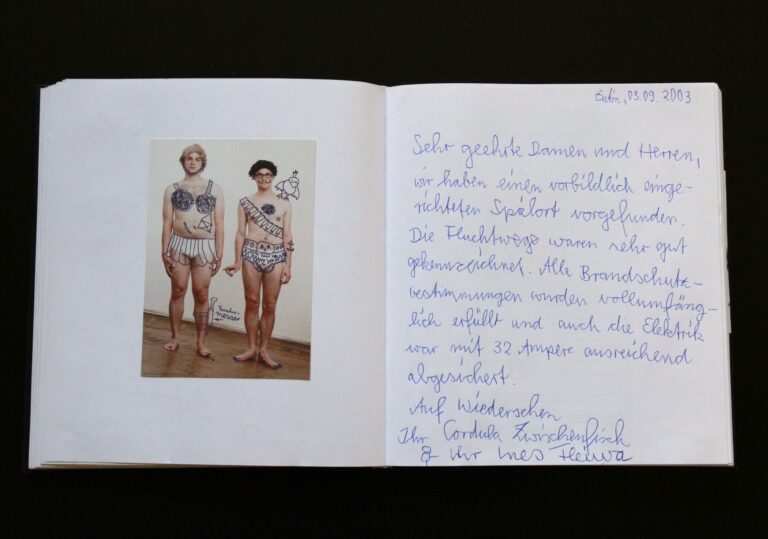 Taucher-
messer
Eutin, 03.09.2003
Sehr geehrte Damen und Herren,
wir haben einen vorbildlich einge-
richteten Spielort vorgefunden.
Die Fluchtwege waren sehr gut
gekennzeichnet. Alle Brandschutz-
bestimmungen wurden vollumfäng-
lich erfüllt und auch die Elektrik
war mit 32 Ampere ausreichend
abgesichert.
Auf Wiedersehen
Ihr Cordula Zwischenfisch
& Ihr Ines Fleiwa